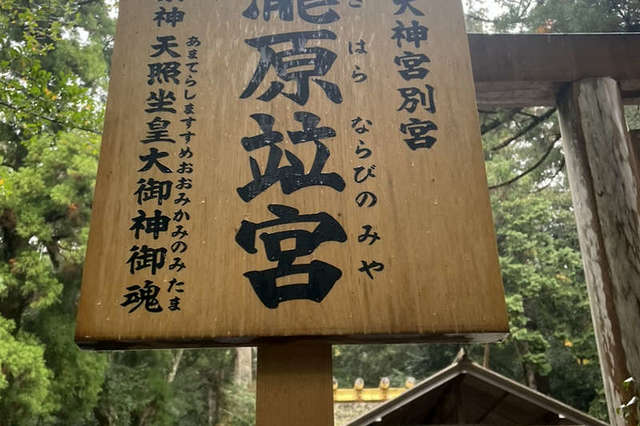 大神宮別宮
はら ならびの みや
瀧原竝宮
あまてらしますすめおおみかみのみたま
神 天照坐皇大御神御魂